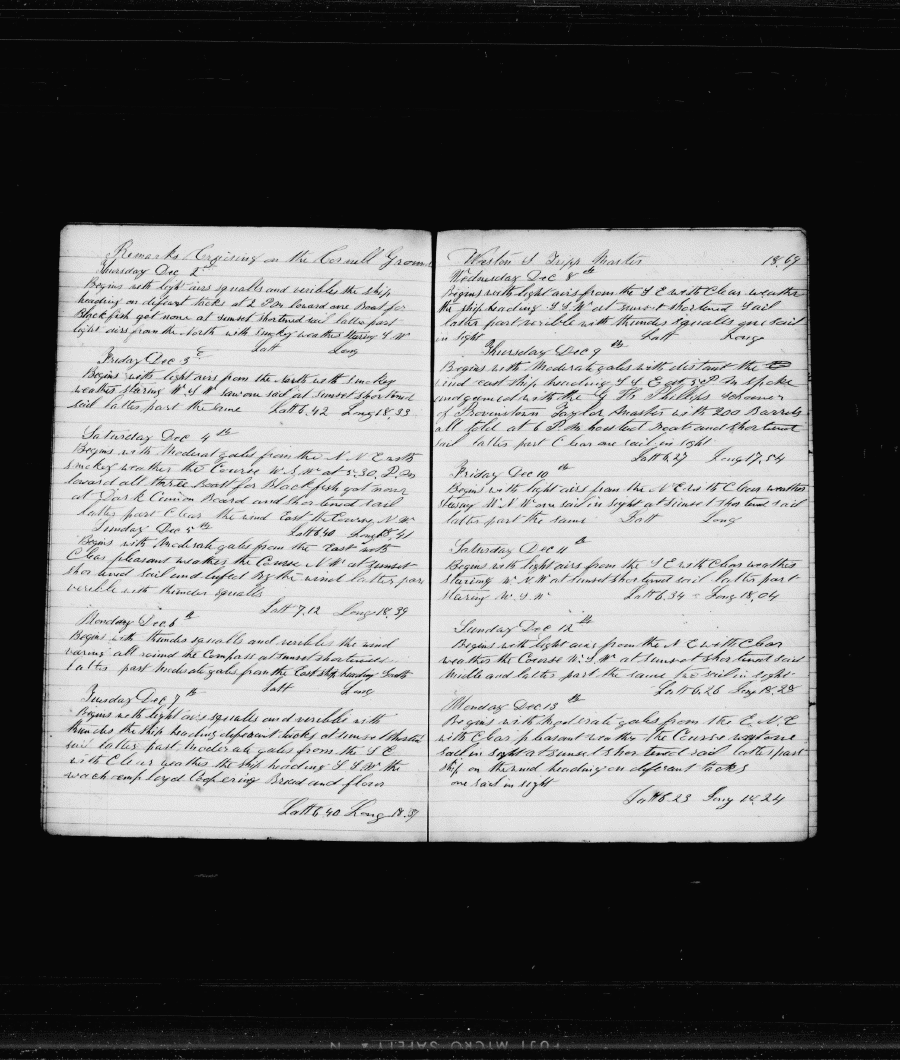 Remarks Cruising on the Cornell Ground
Thursday Dec 2
Begins with light airs squalls and veribles the ship
heading on deferant tacks at 2 P.M. loward one Boat for
Blackfish got none at sunset shortened sail latter part
light airs from the North with smokey weather staring S W
Latt Long
Friday Dec 3
Begins with light airs from the North with smokey
weather staring W.S.W saw one sail at sunset shortened
sail latter part the same Latt 6.42 Long 18.33
Saturday Dec 4th
Begins with Moderat gales from the N.N.E with
smokey weather the Course W.S.W at 5.30. P.M
loward all three Boatt for Blackfish got none
at Dark Board and shortened sail
latter part Clear the wind East the Course N.W
Sunday Dec 5th Latt 6.40 Long 18.41
Begins with Moderate gales from the East with
Clear pleasant weather the Course N W at sunset
shortend sail and lufed by the wind latter part
verible with thunder squalls
Latt 7.12 Long 18.39
Monday Dec 6th
Begins with thunder squalls and veribles the wind
varing all round the Compass at sunset shortened
latter part Moderate gales from the East ship heading South
Latt Long
Tuesday Dec 7th
Begins with light airs squalls and verible with
thunder the ship heading deferant tacks at sunset
sail latter part Moderate gales from the S E
with Clear weather the ship heading S.S.W the
wach employd Coopering Bread and flour
Latt 6.40 Long 18.
Weston S. Tripp Master 1869
Wednesday Dec 8th
Begins with light airs from the S E with Clear weather
the ship heading S.S.W at sunset shortened Sail
latter part verible with thunder squalls one sail
in sight Latt Long
Thursday Dec 9th
Begins with Moderate gales with distant the
wind east ship heading S S E at 5 P M spoke
and gamed with the G W Phillips schooner
of Provinstown Taylor Master with 200 Barrels
all told at 6 P M Boat and shortened
sail latter part Clear one sail in sight
Latt 6.27 Long 17.54
Friday Dec 10th
Begins with light airs from the N E with Clear weather
staring W N W one sail in sight at sunset shortened sail
latter part the same Latt Long
Saturday Dec 11th
Begins with light airs from the S E with Clear weather
staring W.N.W at sunset shortened sail latter part
staring W.S.W Latt 6.34 Long 18.04
Sunday Dec 12th
Begins with light airs from the N E with Clear
weather the Course W.S.W at sunset shortened sail
Middle and latter part the same two sail in sight
Latt 6.26 Long 18.28
Monday Dec 13th
Begins with Moderate gales from the E.N.E
with Clear pleasant weather the Course one
sail in sight at sunset shortened sail latter part
ship on the wind heading on deferant tacks
one sail in sight
Latt 6.23 Long 18.24
FUJI MICRO SAFETY